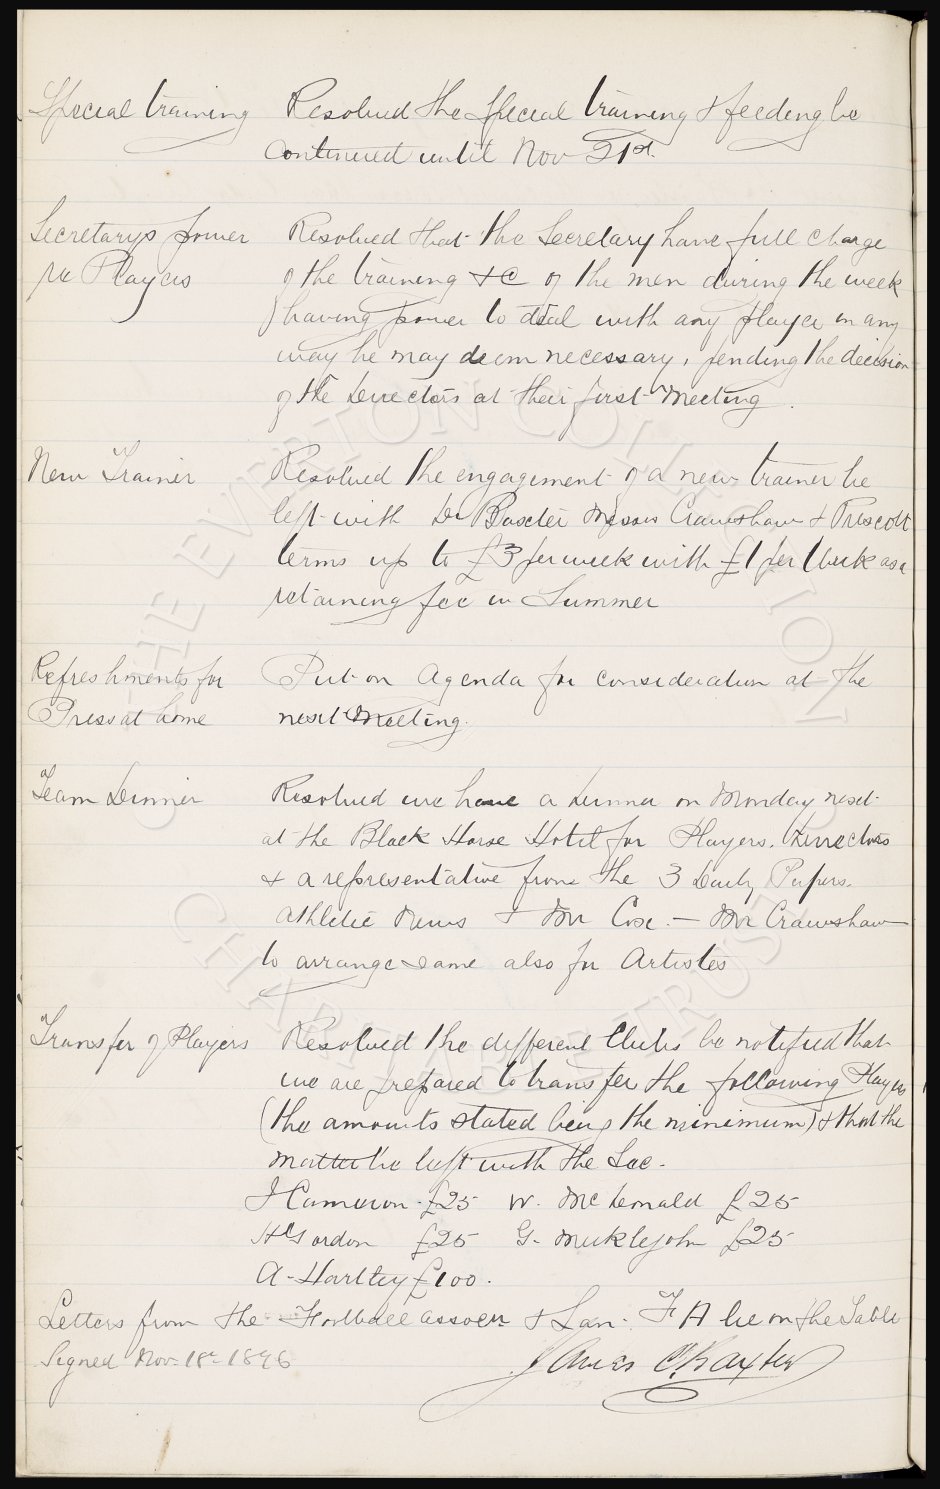 Special training Resolved the special training & feeding be
continued until Nov 21st.
Secretarys power Resolved that the Secretary have full charge
re Players of the training &c of the men during the week
having power to deal with any player in any
way he may deem necessary, pending the decision
of the Directors at their first meeting.
New Trainer Resolved the engagement of a new trainer be
left with Dr Baxter Messrs Crawshaw & Prescott
terms up to £3 per week with £1 per week as a
retaining fee in Summer
Refreshments for Put on Agenda for consideration at the
Press at home next Meeting.
Team Dinner Resolved we have a dinner on Monday next
at the Black Horse Hotel for Players, Directors
& a representative from the 3 Daily Papers.
Athletic News & Mr Cox. — Mr Crawshaw
to arrange same also for Artistes
Transfer of Players Resolved the different Clubs be notified that
we are prepared to transfer the following Players
(the amounts stated being the minimum) & that the
matter be left with the Sec.
J Cameron £25 W. McDonald £25
H Gordon £25 G. Meiklejohn £25
A. Hartley £100.
Letters from the Football assocn & Lan. F A lie on the Table
Signed Nov. 18th 1896 James C. Baxter
THE EVERTON COLLECTION
CHARITABLE TRUST